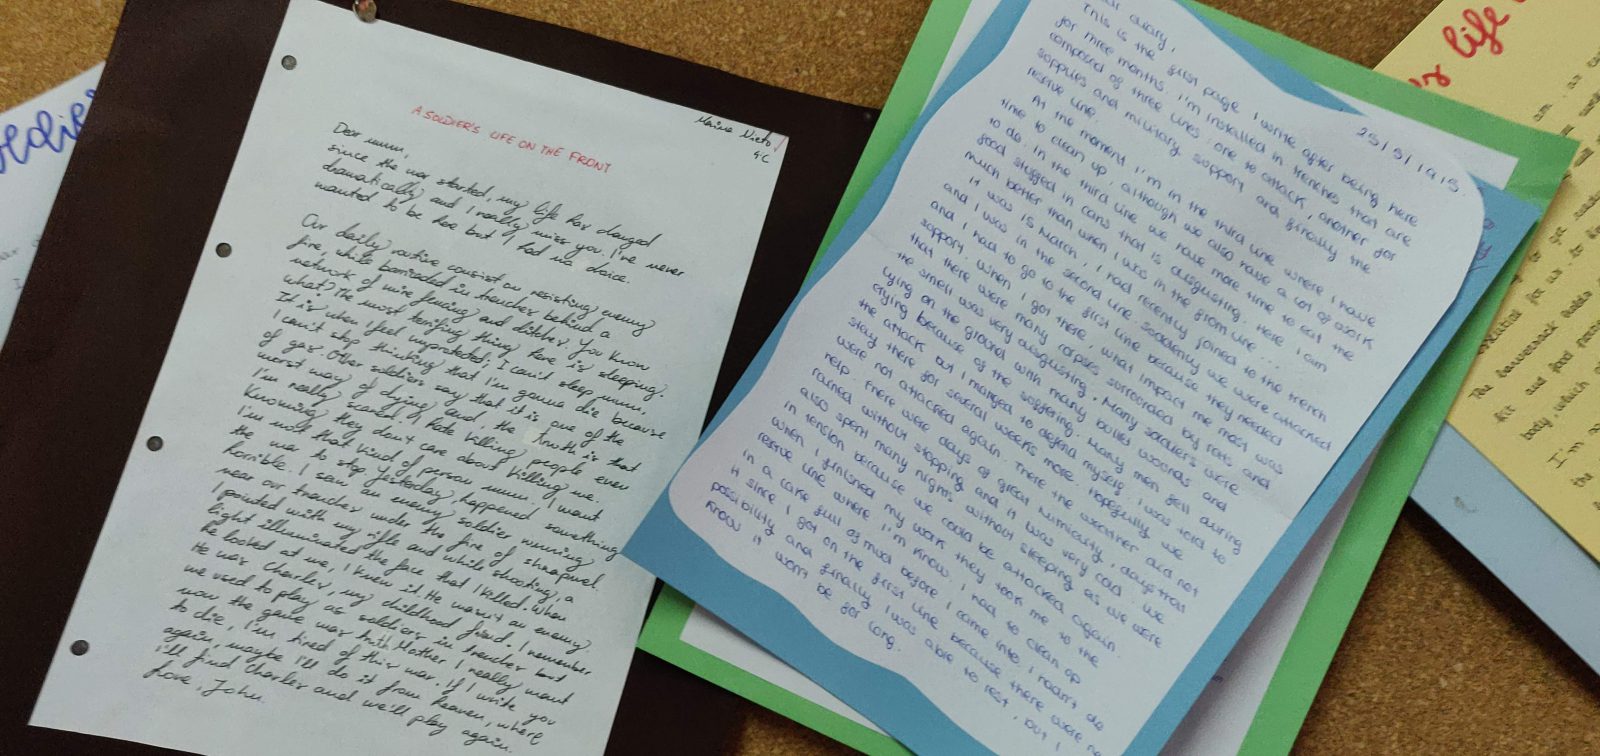 A SOLDIER'S LIFE ON THE FRONT
4ºC
Dear mum,
since the war started, my life has changed
dramatically and I really miss you. I've never
wanted to be here but I had no choice.
Our daily routine consist on resisting enemy
fire, while barricaded in trenches behind a
network of wire fencing and ditches. You know
what? The most terrifing thing here is sleeping.
It is when I feel unprotected, I can't sleep mum,
I can't stop thinking that I'm gonna die because
of gas. Other soldiers say that it is one of the
worst way of dying and, the truth is that
I'm really scared. I hate killing people even
knowing they don't care about killing me.
I'm not that kind of person mum. I want
the war to stop. Yesterday happened something
horrible. I saw an enemy soldier running
near our trenches under the fire of shrapnel.
I pointed with my rifle and while shooting, a
light illuminated the face that I killed. When
he looked at me, I knew it. He wasn't an enemy.
He was Charles, my childhood friend. I remember
we used to play as soldiers in trenches but
now the game was truth. Mother I really want
to die, I'm tired of this war. If I write you
again, maybe I'll do it from heaven, where
I'll find Charles and we'll play again.
Love, John.
25/5/1915
diary,
This is the first page I write after being here
for three months. I'm installed in trenches that are
composed of three lines: one to attack, another for
supplies and military support and finally the
reserve line.
At the moment I'm in the third line where I have
time to clean up, although we also have a lot of work
to do. In the third line we have more time to eat the
good stuffed in cans that is disgusting. Here I am
much better than when I was in the front line...
It was 15 March, I had recently joined to the trench
and I was in the second line. Suddenly we were attacked
and I had to go to the first line because they needed
support. When I got there, what impact me most was
that there were many corpses surrounded by rats and
the smell was very disgusting. Many soldiers were
lying on the ground with many bullet wounds and
crying because of the suffering. Many men fell during
the attack but I manged to defend myself. I was told to
stay there for several weeks more. Hopefully we
were not attacked again. There the weather did not
help. There were days of great humidity, days that
rained without stopping and it was very cold. We
also spent many nights without sleeping as we were
in tension because we could be attacked again.
When I finished my work they took me to the
reserve line where I'm know. I had to clean up
in a cane full of mud before I came into. I hadn't do
it since I got on the first line because there were no
possibility and finally I was able to rest, but I
know it won't be for long.
life
The haversack
body, which
I'm
the